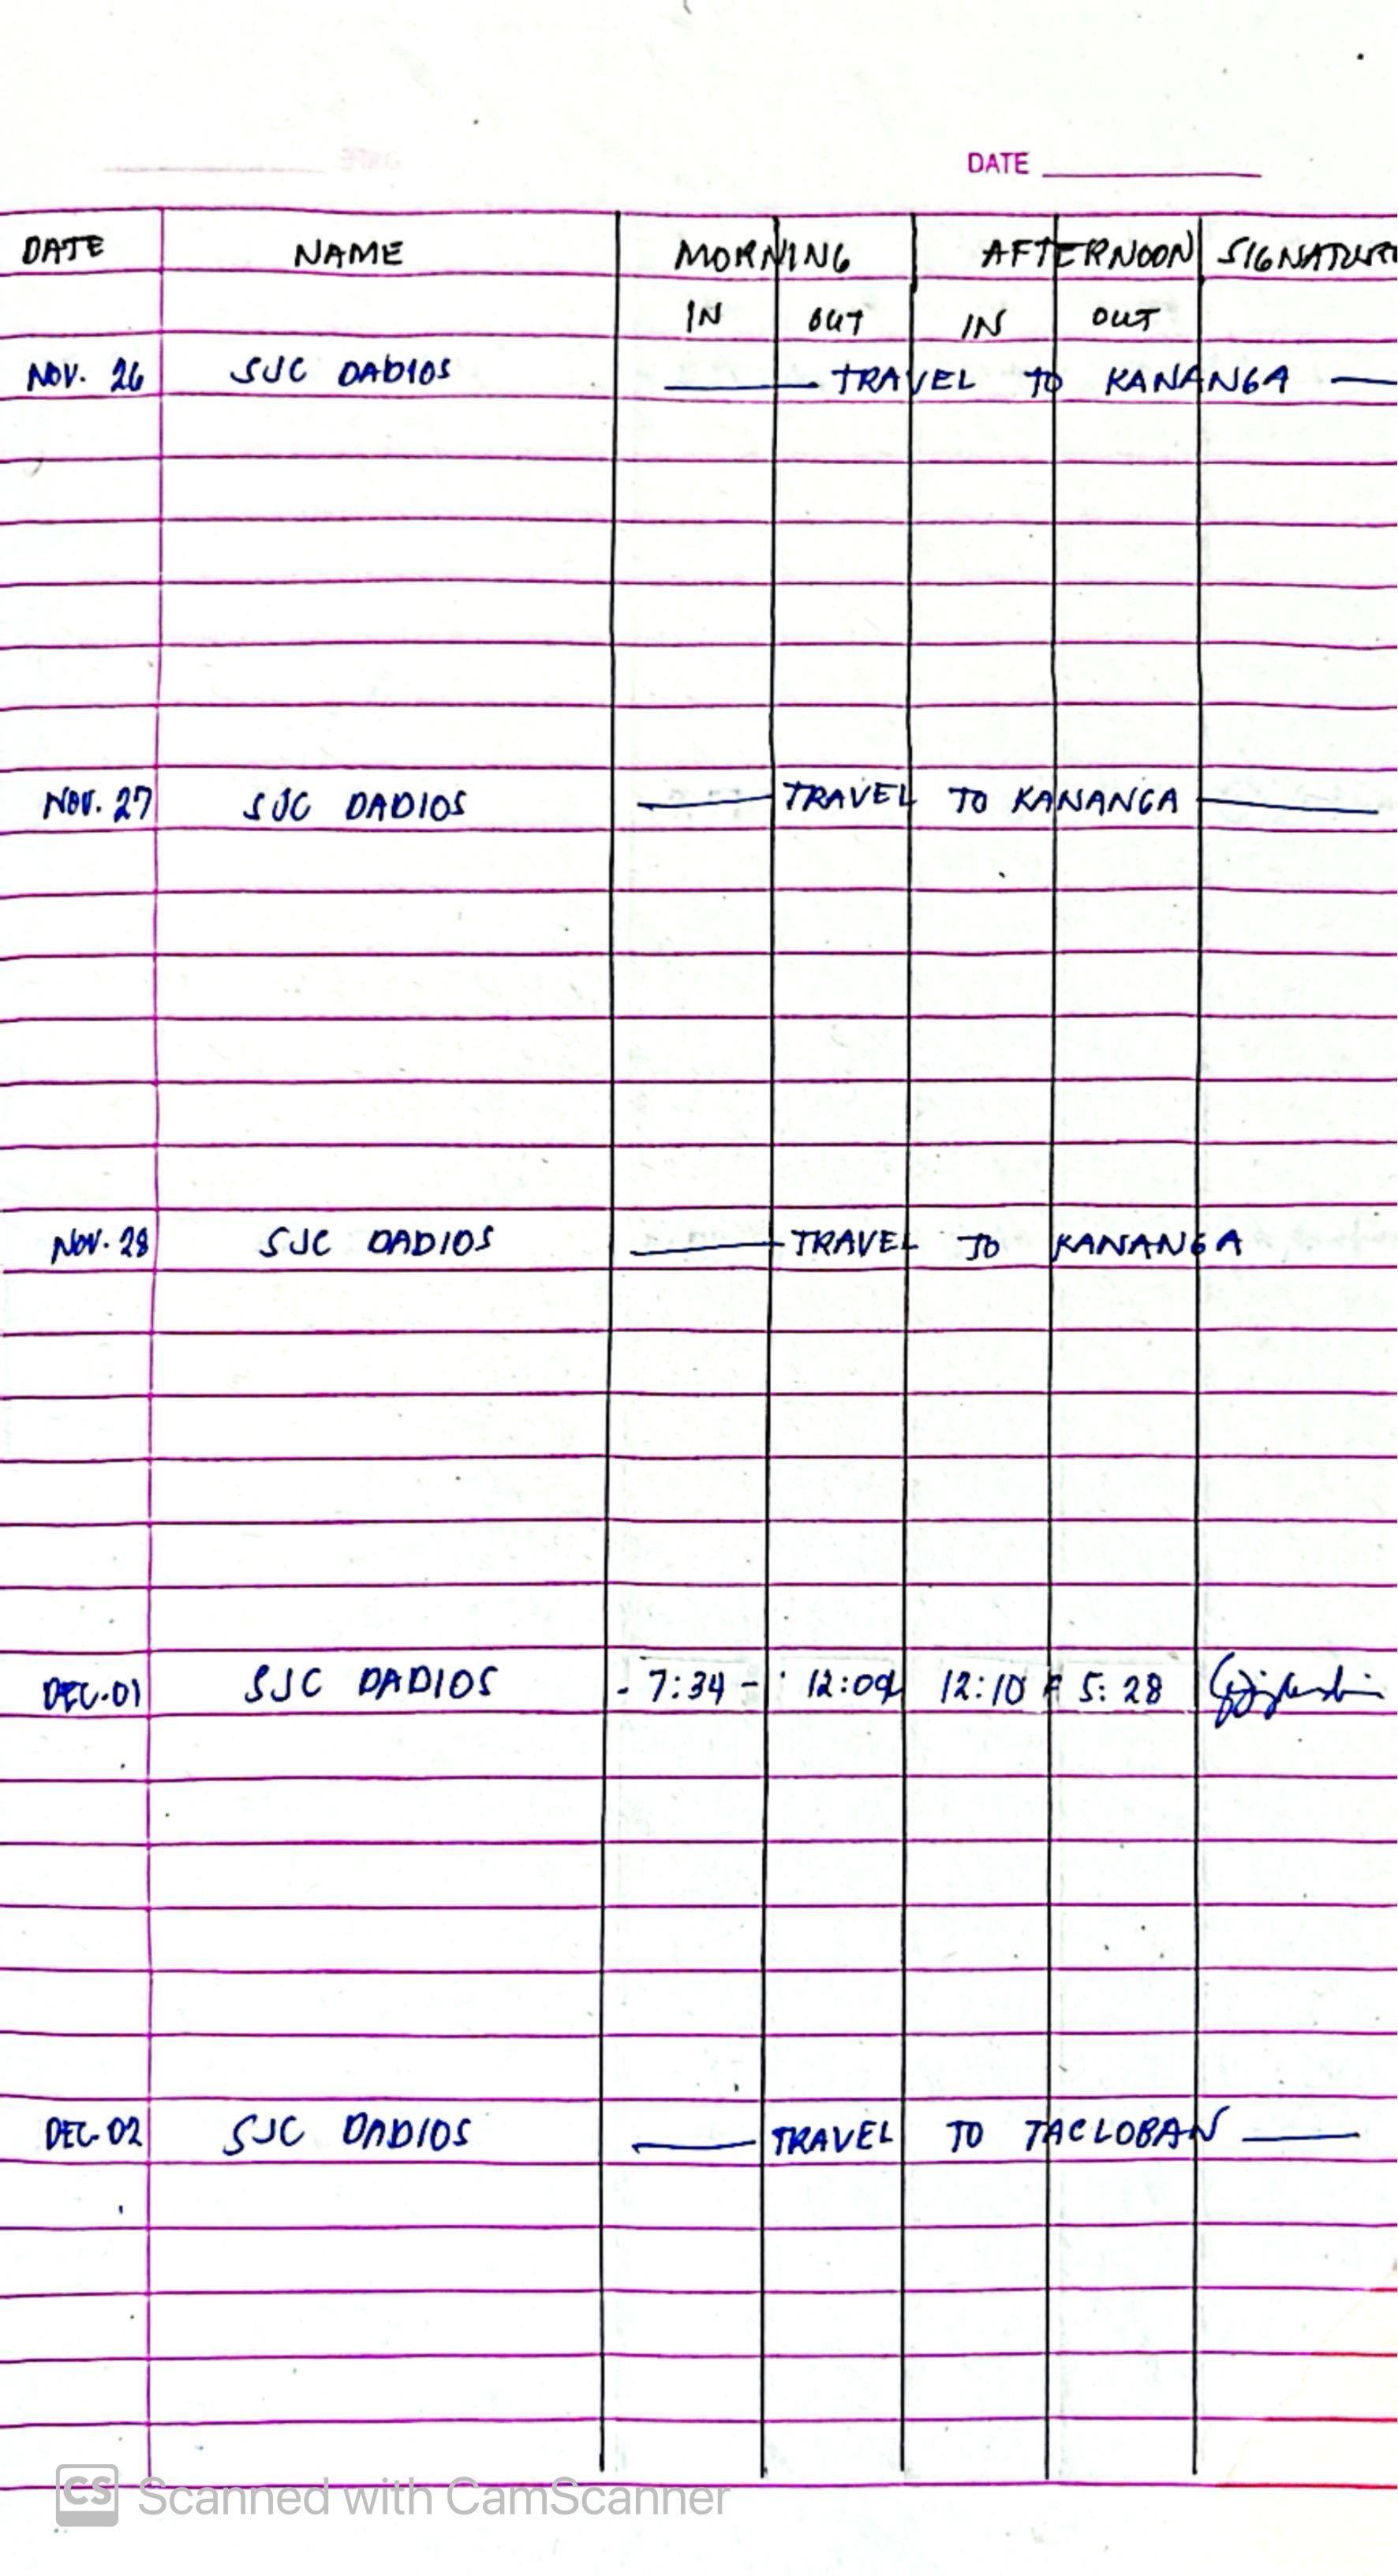 DATE
DATE NAME MORNING AFTERNOON SIGNATURE
IN OUT IN OUT
NOV. 26 SJC DADIOS — TRAVEL TO KANANGA —
NOV. 27 SJC DADIOS — TRAVEL TO KANANGA —
NOV. 28 SJC DADIOS — TRAVEL TO KANANGA
DEC. 01 SJC DADIOS - 7:34 - 12:10 5:28
DEC. 02 SJC DADIOS — TRAVEL TO TACLOBAN —
CS Scanned with CamScanner